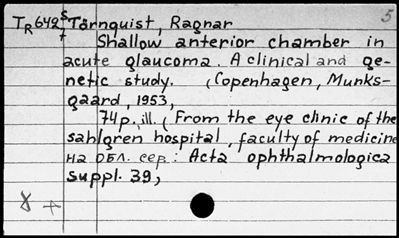 5
TR642 s/t Törnquist, Ragnar
Shallow anterior chamber in
acute glaucoma. A clinical and ge-
netic study. (Copenhagen, Munks-
gaard, 1953,
74p., ill. (From the eye clinic of the
sahlgren hospital, faculty of medicine
на обл. сер.: Acta ophthalmologica
suppl. 39,
8 +